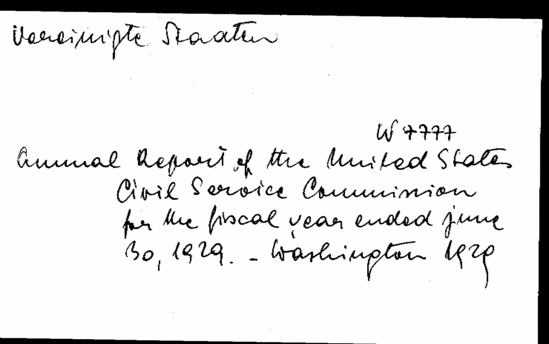 Vereinigte Staaten
W 7777
Annual Report of the United States
Civil Service Commission
for the fiscal year ended june
30, 1929. - Washington 1929